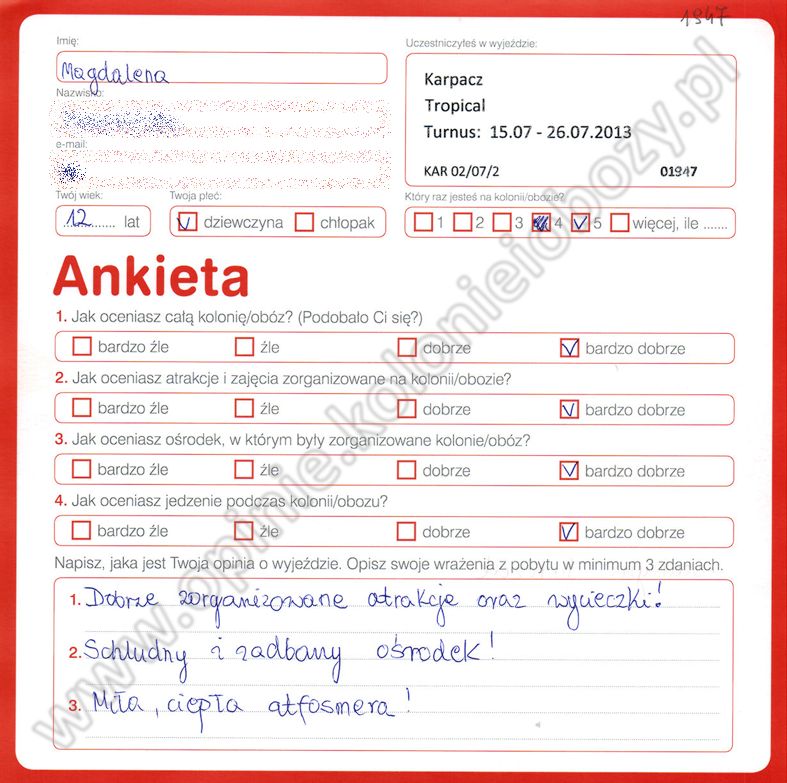 1947
Imię:
Magdalena
Nazwisko:
e-mail:
Uczestniczyłeś w wyjeździe:
Karpacz
Tropical
Turnus: 15.07 - 26.07.2013
KAR 02/07/2 01947
Twój wiek:
12 lat
Twoja płeć:
dziewczyna chłopak
Który raz jesteś na kolonii/obozie?
1 2 3 4 5 więcej, ile .......
Ankieta
1. Jak oceniasz całą kolonię/obóz? (Podobało Ci się?)
bardzo źle źle dobrze bardzo dobrze
2. Jak oceniasz atrakcje i zajęcia zorganizowane na kolonii/obozie?
bardzo źle źle dobrze bardzo dobrze
3. Jak oceniasz ośrodek, w którym były zorganizowane kolonie/obóz?
bardzo źle źle dobrze bardzo dobrze
4. Jak oceniasz jedzenie podczas kolonii/obozu?
bardzo źle źle dobrze bardzo dobrze
Napisz, jaka jest Twoja opinia o wyjeździe. Opisz swoje wrażenia z pobytu w minimum 3 zdaniach.
1. Dobrze zorganizowane atrakcje oraz wycieczki!
2. Schludny i zadbany ośrodek!
3. Miła, ciepła atfosmera!
www.opinie.kolonieiobozy.pl